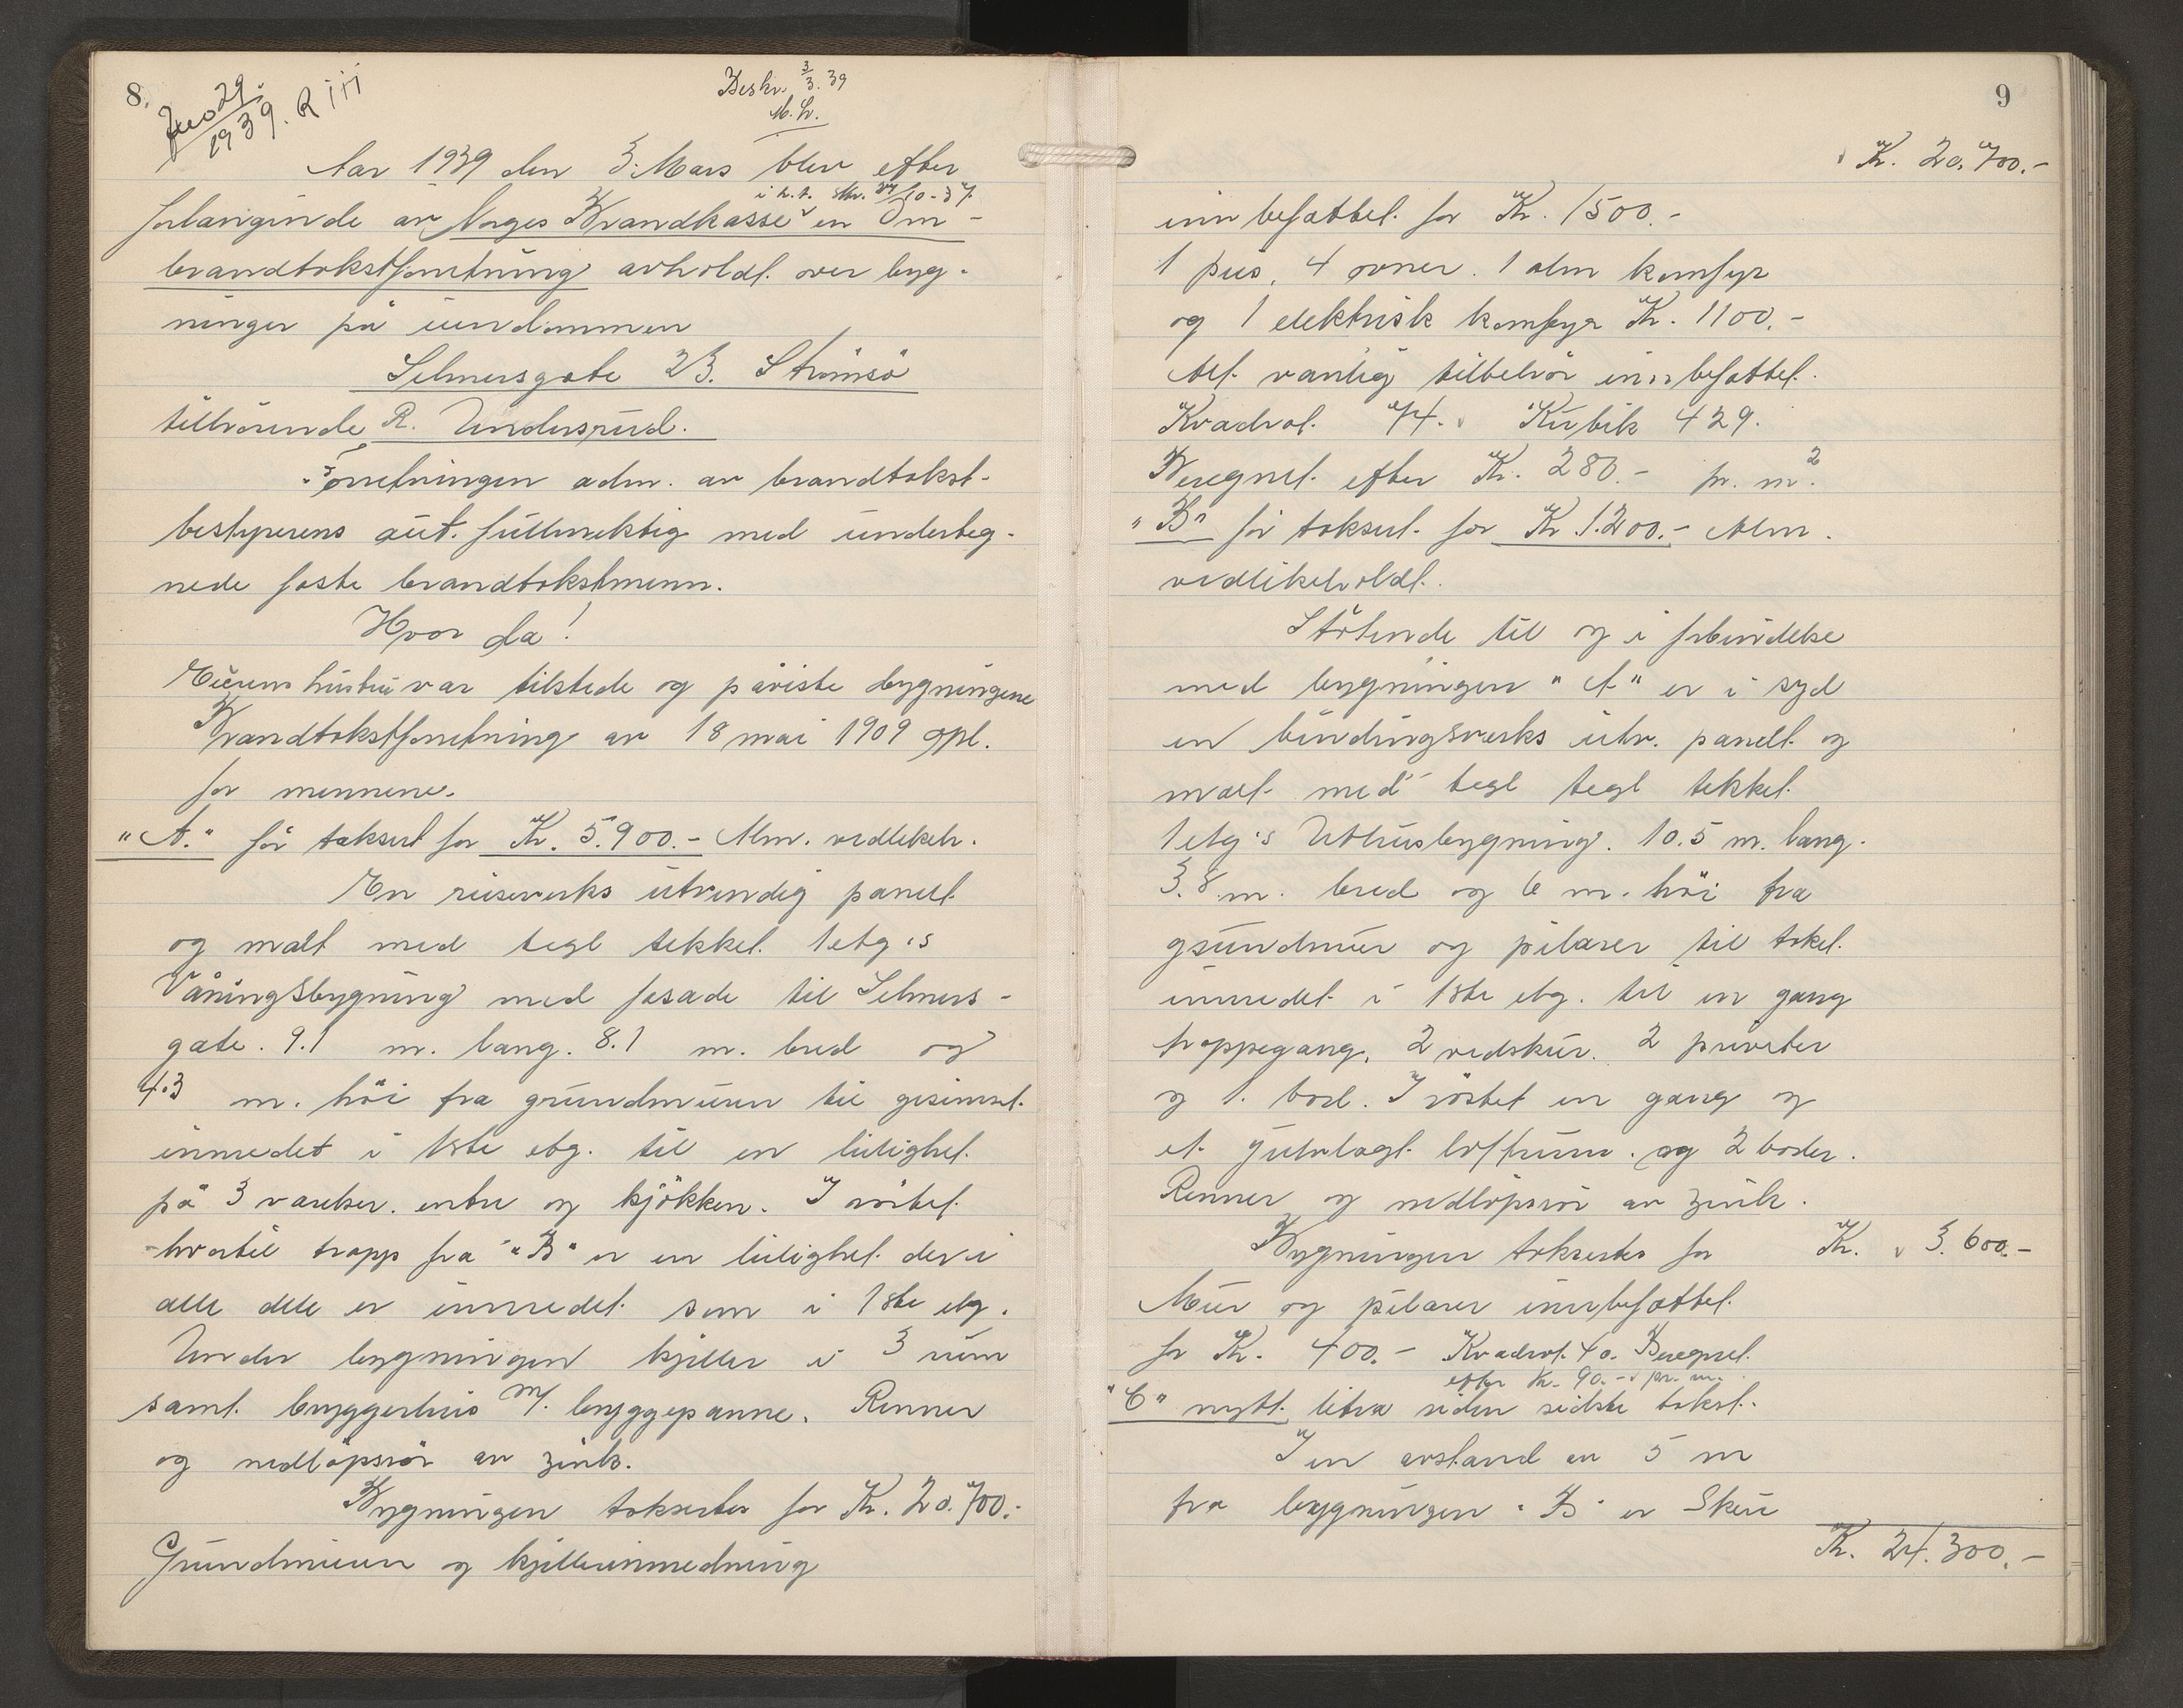 8.
29
1939. R iii
Beskr. 3/3. 39
M. L.
Aar 1939 den 3. Mars blev efter
i h. t. skr. 27/10-37.
forlangende av Norges Brandkasse en Om-
brandtakstforretning avholdt over byg-
ninger på eiendommen
Selmersgate 23. Strömsö
tilhörende R. Underspud.
Forretningen adm. av brandtakst-
bestyrerens aut. fullmektig med underteg-
nede faste brandtakstmenn.
Hvor da!
Eierens hustru var tilstede og påviste bygningene
Brandtakstforretning av 18 mai 1909 opl.
for mennene.
"A." för taksert for Kr. 5.900.- Alm. vedlikeh.
En reisverks utvendig panelt
og malt med tegl tekket 1 etg's
Våningsbygning med fasade til Selmers-
gate. 9.1 m. lang. 8.1 m. bred og
4.3 m. höi fra grundmuren til gesimset.
innredet i 1ste etg. til en leilighet
på 3 værelser. entre og kjökken. I röstet
hvortil trapp fra "B" er en leilighet der i
alle dele er innredet som i 1ste etg.
Under bygningen kjeller i 3 rum
samt bryggerhus m/. bryggepanne. Renner
og nedlöpsrör av zink.
Bygningen takseres for Kr. 20.700.-
Grundmuren og kjellerinnredning
9
Kr. 20.700.-
innbefattet for Kr. 1500.-
1 peis, 4 ovner. 1 alm komfyr
og 1 elektrisk komfyr Kr. 1100.-
Alt vanlig tilbehör innbefattet.
Kvadrat 74. Kubik 429.
Beregnet efter Kr. 280.- pr. m²
"B" för taksert for Kr 1.200.- Alm.
vedlikeholdt.
Stötende til og i forbindelse
med bygningen "A" er i syd
en bindingsverks utv. panelt og
malt med tegl tegl tekket
1 etg's Uthusbygning. 10.5 m. lang.
3.8 m. bred og 6 m. höi fra
grundmur og pilarer til taket.
innredet i 1ste etg. til en gang
trappegang, 2 vedskur. 2 priveter
og 1. bod. I röstet en gang og
et gulvlagt loftrum. og 2 boder.
Renner og nedlöpsrör av zink.
Bygningen takseres for Kr. 3.600.-
Mur og pilarer innbefattet
for Kr. 400.- Kvadrat 40. Beregnet
efter Kr. 90.- pr. m.
"C" nytt litra siden sidste takst.
I en avstand av 5 m
fra bygningen "B" er Skur
Kr. 24.300.-